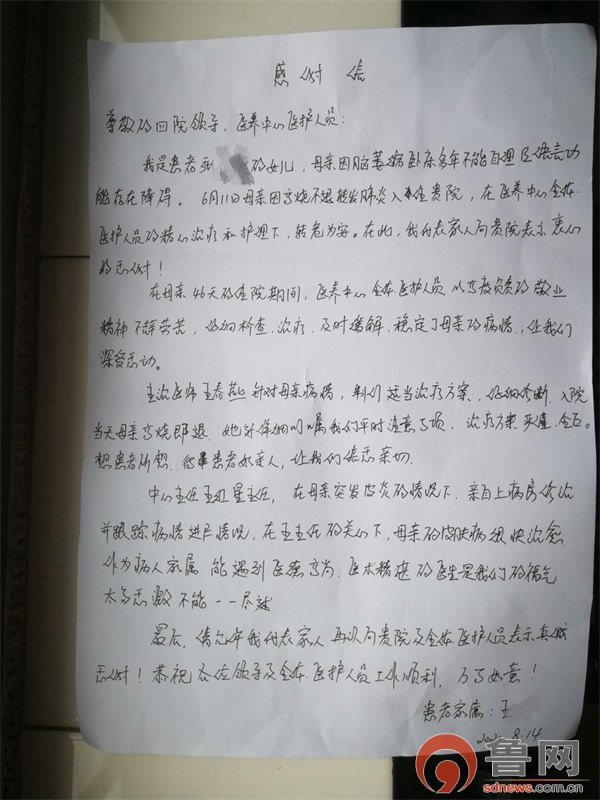 感谢信
尊敬的四院领导，医养中心医护人员：
我是患者 的女儿，母亲因脑萎缩卧床多年不能自理且语言功
能存在障碍。6月11日母亲因高烧不退转发肺炎入住贵院，在医养中心全体
医护人员的精心治疗和护理下，转危为安。在此，我代表家人向贵院表示衷心
的感谢！
在母亲46天的住院期间，医养中心全体医护人员以高度负责的敬业
精神不辞劳苦，仔细检查、治疗，及时缓解，稳定了母亲的病情，让我们
深受感动。
主治医师王春燕针对母亲病情，制订适当治疗方案，仔细诊断，入院
当天母亲高烧即退，她详细叮嘱我们平时注意事项，治疗方案
想患者所想，待患者如亲人，让我们倍感亲切。
中心主任王 主任，在母亲突发皮炎的情况下，亲自上病房诊治
并跟踪病情进展情况，在王主任的关心下，母亲的皮肤病很快治愈
作为病人家属，能遇到医德高尚，医术精湛的医生是我们的福气
太多感激不能一一尽述
最后，请允许我代表家人再次向贵院及全体医护人员表示真诚
感谢！恭祝各位领导及全体医护人员工作顺利，万事如意！
患者家属：王
8.14
鲁网
sdnews.com.cn